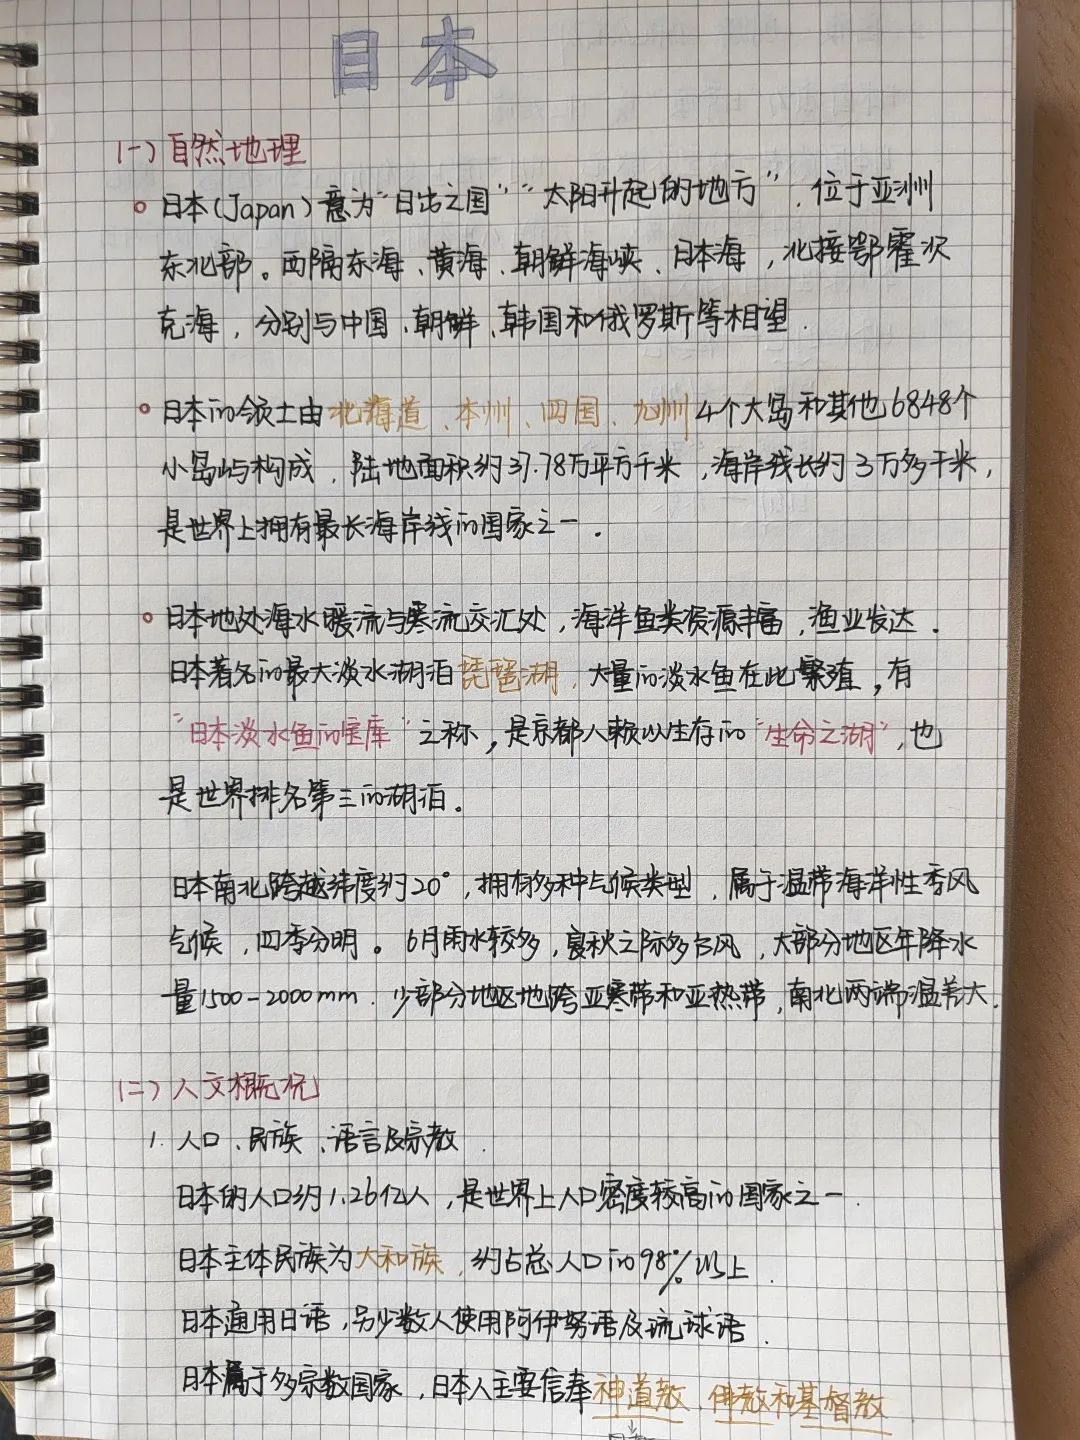 日本
(一) 自然地理
日本(Japan)意为“日出之国”“太阳升起的地方”,位于亚洲
东北部。西隔东海、黄海、朝鲜海峡、日本海,北接鄂霍次
克海,分别与中国、朝鲜、韩国和俄罗斯等相望.
日本的领土由北海道、本州、四国、九州4个大岛和其他6848个
小岛屿构成,陆地面积约37.78万平方千米,海岸线长约3万多千米,
是世界上拥有最长海岸线的国家之一.
日本地处海水暖流与寒流交汇处,海洋鱼类资源丰富,渔业发达.
日本著名的最大淡水湖泊琵琶湖,大量的淡水鱼在此繁殖,有
“日本淡水鱼的宝库”之称,是京都人赖以生存的“生命之湖”,也
是世界排名第三的湖泊。
日本南北跨越纬度约20°,拥有多种气候类型,属于温带海洋性季风
气候,四季分明。6月雨水较多,夏秋之际多台风,大部分地区年降水
量1500-2000mm.少部分地区地跨亚寒带和亚热带,南北两端温差大.
(二) 人文概况
1. 人口、民族、语言及宗教.
日本的人口约1.26亿人,是世界上人口密度较高的国家之一.
日本主体民族为大和族,约占总人口的98%以上.
日本通用日语,另少数人使用阿伊努语及琉球语.
日本属于多宗教国家,日本人主要信奉神道教、佛教和基督教